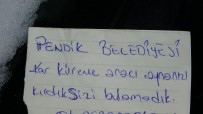 PENDİK BELEDİYESİ
kar küreme aracı aynanızı
kırdık Sizi bulamadık.